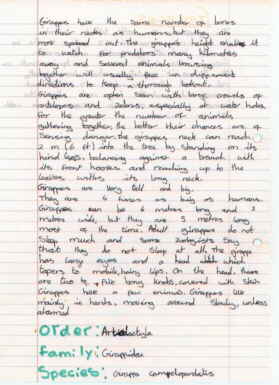 Giraffes have the same number of bones
in their necks as humans, but they are
more spread out. The giraffes height enables it
to watch for predators many kilometres
away and several animals browsing
together will usually face in different
directions to keep a thorough lookout.
Giraffes are often seen with large crowds of
antelopes and zebras, especially at water holes
for the greater the number of animals
gathering together, the better their chances are of
sensing danger. The giraffes neck can reach
2 m (6 ft) into the tree by standing on its
hind legs, balancing against a branch with
its front hooves and reaching up to the
leaves with its long neck.
Giraffes are very tall and big.
They are 4 times as big as humans.
Giraffes can be 6 metres long and 2
metres wide, but they are 5 metres long
more of the time. Adult giraffes do not
sleep much and some zoologists say
that they do not sleep at all. The giraffe
has large eyes and a head which
tapers to mobile, hairy lips. On the head, there
are two to five bony knobs, covered with skin
Giraffes have a pair
mainly in herds, moving around slowly, unless
alarmed
Order: Artiodactyla
Family: Giraffidea
Species: Giraffa camelopardalis